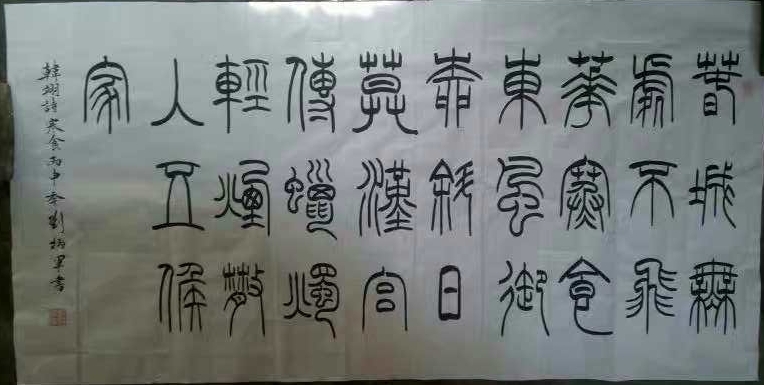 春城無
處不飛
華寒食
東風御
柳斜日
莫漢宮
傳蠟燭
輕煙散
入五侯
家
韓翃詩寒食丙申劉軍書